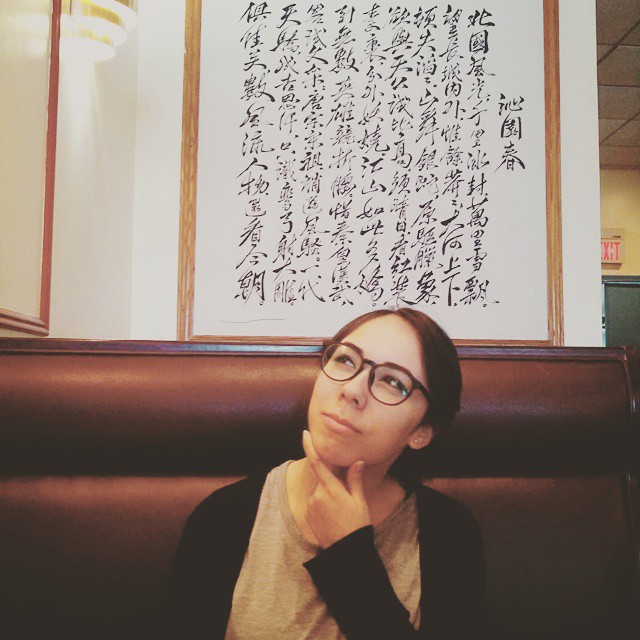 沁園春
北國風光,千里冰封,萬里雪飄。
望長城內外,惟餘莽莽;大河上下,
頓失滔滔。山舞銀蛇,原驅臘象,
欲與天公試比高。須晴日,看紅裝
素裹,分外妖嬈。江山如此多嬌,
引無數英雄競折腰。惜秦皇漢武
略輸文采,唐宗宋祖稍遜風騷。一代
天驕成吉思汗,只識彎弓射大雕。
俱往矣,數風流人物還看今朝
EXIT